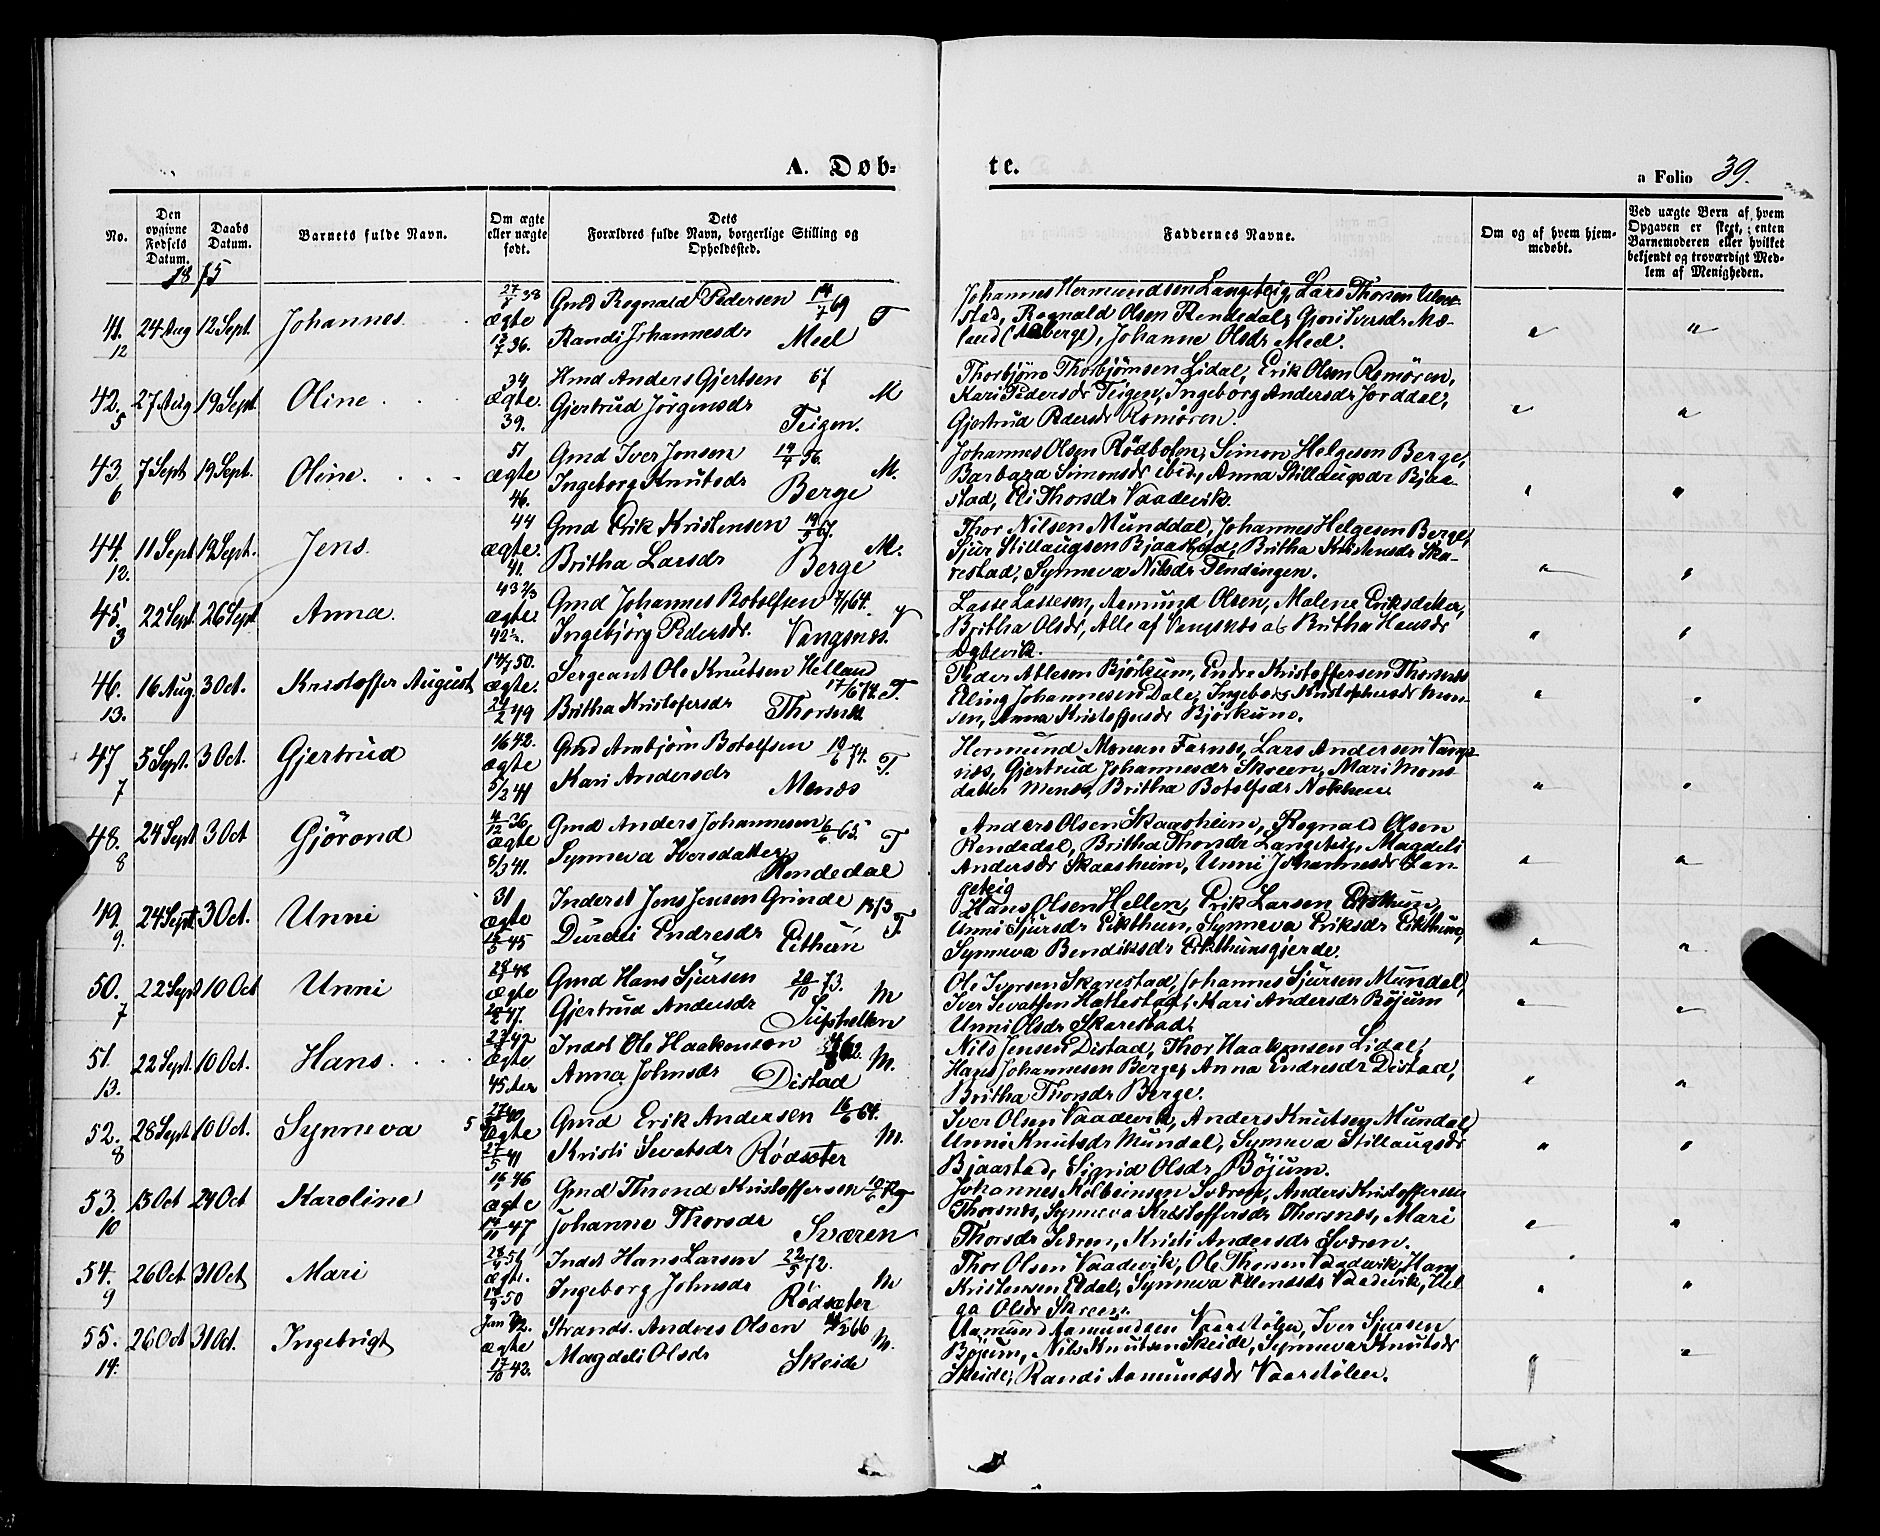 A. Døb-
te.
a Folio 39.
No.
Den opgivne Fødsels Datum.
Daabs Datum.
Barnets fulde Navn.
Om ægte eller uægte født.
Dets Forældres fulde Navn, borgerlige Stilling og Opholdssted.
Faddernes Navne.
Om og af hvem hjemmedøbt.
Ved uægte Børn af hvem Opgaven er skeet, enten Barnemoderen eller hvilket bekjendt og troværdigt Medlem af Menigheden.
1875
41. 24 Aug 12 Sept. Johannes ægte Gmd Regnald Pedersen 14/7 69 T
12 36. Randi Johannesdr Meel
Johannes Hermundsen Langeteig, Lars Thorsen
stad, Regnald Olsen Rendedal, Gjori Iversdr Mæ-
land (Aaberge), Johanne Olsdr Meel.
42. 27 Aug 19 Sept Oline 34 ægte. 39. Hmd Anders Gjertsen 67 M
5 Gjertrud Jörgensdr Teigen.
Thorbjörn Thorbjörnsen Lidal, Erik Olsen Romören,
Kari Pedersdr Teigen, Ingeborg Andersdr Jorddal,
Gjertrud Pedersdr Romören.
43. 7 Sept 19 Sept. Oline. 51 ægte 46. Gmd Iver Jonsen M.
6 Ingeborg Knutsdr Berge
Johannes Olsen Rödbolen, Simon Helgesen Berge,
Barbara Simonsdr ibid, Anna Stillaugsdr Bjaa-
stad, Eli Thorsdr Vaadevik.
44. 11 Sept 19 Sept. Jens 44 ægte. 41. Gmd Erik Kristensen M.
12. Britha Larsdr Berge
Thor Nilsen Munddal, Johannes Helgesen Berge,
Sjur Stillaugsen Bjaastad, Britha Kristensdr Ska-
restad, Synneva Nilsdr Tendingen.
45. 22 Sept. 26 Sept. Anna. 43 2/3 ægte 42 Gmd Johannes Botolfsen 64.
3 Ingebjörg Pedersdr. Vangsnes.
Lasse Lassesen, Aamund Olsen, Malene Eriksdatter,
Britha Olsdr, Alle af Vangsnæs og Britha Hansdr
46. 16 Aug. 3 Oct. Kristoffer August 50. ægte. 24/2 49 Sergeant Ole Knutsen Helland 17/6 74. T
13. Britha Kristofersdr Thorsnæs
Peder Atleson Björkum, Endre Kristoffersen Thorsnæs
Elling Johannesen Dale, Ingeborg Kristophersdr Mun-
sen, Anna Kristoffersdr Björkum.
47 5 Sept. 3 Oct. Gjertrud 1/6 42. ægte 5/3 41 Gmd Arnbjörn Botolfsen 74. T.
7 Kari Andersdr Menæs
Hermund Monsen Farnæs, Lars Andersen Vangs-
næs, Gjertrud Johannesdr Skoeen, Mari Mons
datter Menæs, Britha Botolfsdr Nokken.
48. 24 Sept 3 Oct Gjörond 4/12 36 ægte 8/3 41. Gmd Anders Johannesen 6/6 65 T
8 Synneva Iversdatter Rendedal
Anders Olsen Skaasheim, Regnald Olsen
Rendedal, Britha Thorsdr Langeteig, Magdeli
Andersdr Skaasheim, Unni Johannesdr Lan-
geteig
49. 24 Sept 3 Oct. Unni 31 ægte 15/5 45 Inderst Jens Jensen Grinde T.
9. Durdei Endresdr Eithun
Hans Olsen Hellen, Erik Larsen Eikthun,
Unni Sjursdr Eikthun, Synneva Eriksdr Eikthun,
Synneva Bendiksdr Eikthunsgjerde.
50. 22 Sept 10 Oct Unni 48 ægte 47. Gmd Hans Sjursen 20/10 73. M
7 Gjertrud Andersdr Suphellen
Ole Iversen Skarestad, Johannes Sjursen Mundal,
Iver Sevatsen Hattestad, Kari Andersdr Böjum
Unni Olsdr Skarestad.
51. 22 Sept. 10 Oct. Hans. 42 ægte 45 Indst Ole Haakenson 62. M.
13. Anna Johnsdr Distad
Nils Jensen Distad, Thor Haakensen Lidal,
Hans Johannesen Berge, Anna Endresdr Distad,
Britha Thorsdr Berge.
52. 28 Sept. 10 Oct. Synneva ægte 27/5 41 Gmd Erik Andersen 16/6 64. M.
8 Kristi Sevatsdr Rödseter
Iver Olsen Vaadevik, Anders Knutsen Mundal,
Unni Knutsdr Mundal, Synneva Stillaugsdr
Bjaastad, Sigrid Olsdr Böjum.
53. 13 Oct 24 Oct Karoline 46 ægte 47 Gmd Thrond Kristoffersen
10 Johanne Thorsdr Sværen
Johannes Kolbeinsen Sværen, Anders Kristoffersen
Thorsnæs, Synneva Kristoffersdr Thorsnæs, Mari
Thorsdr Sværen, Kristi Andersdr Sværen.
54. 26 Oct. 31 Oct Mari 51. ægte. 50 Indst Hans Larsen 22/5 72. M
9 Ingeborg Johnsdr Rödsæter
Thor Olsen Vaadevik, Ole Thorsen Vaadevik, Hans
Kristensen Eldal, Synneva Vaadevik, Hel
ga Olsdr Skreen.
55. 26 Oct 31 Oct. Ingebrigt Jan 32. ægte 17/10 42. Strands. Andres Olsen 66 M.
14. Magdeli Olsdr Skeide
Aamund Aamundsen Vaarstölen, Iver Sjursen
Böjum, Nils Knutsen Skeide, Synneva Knutsdr
Skeide, Randi Aamundsdr Vaarstölen.